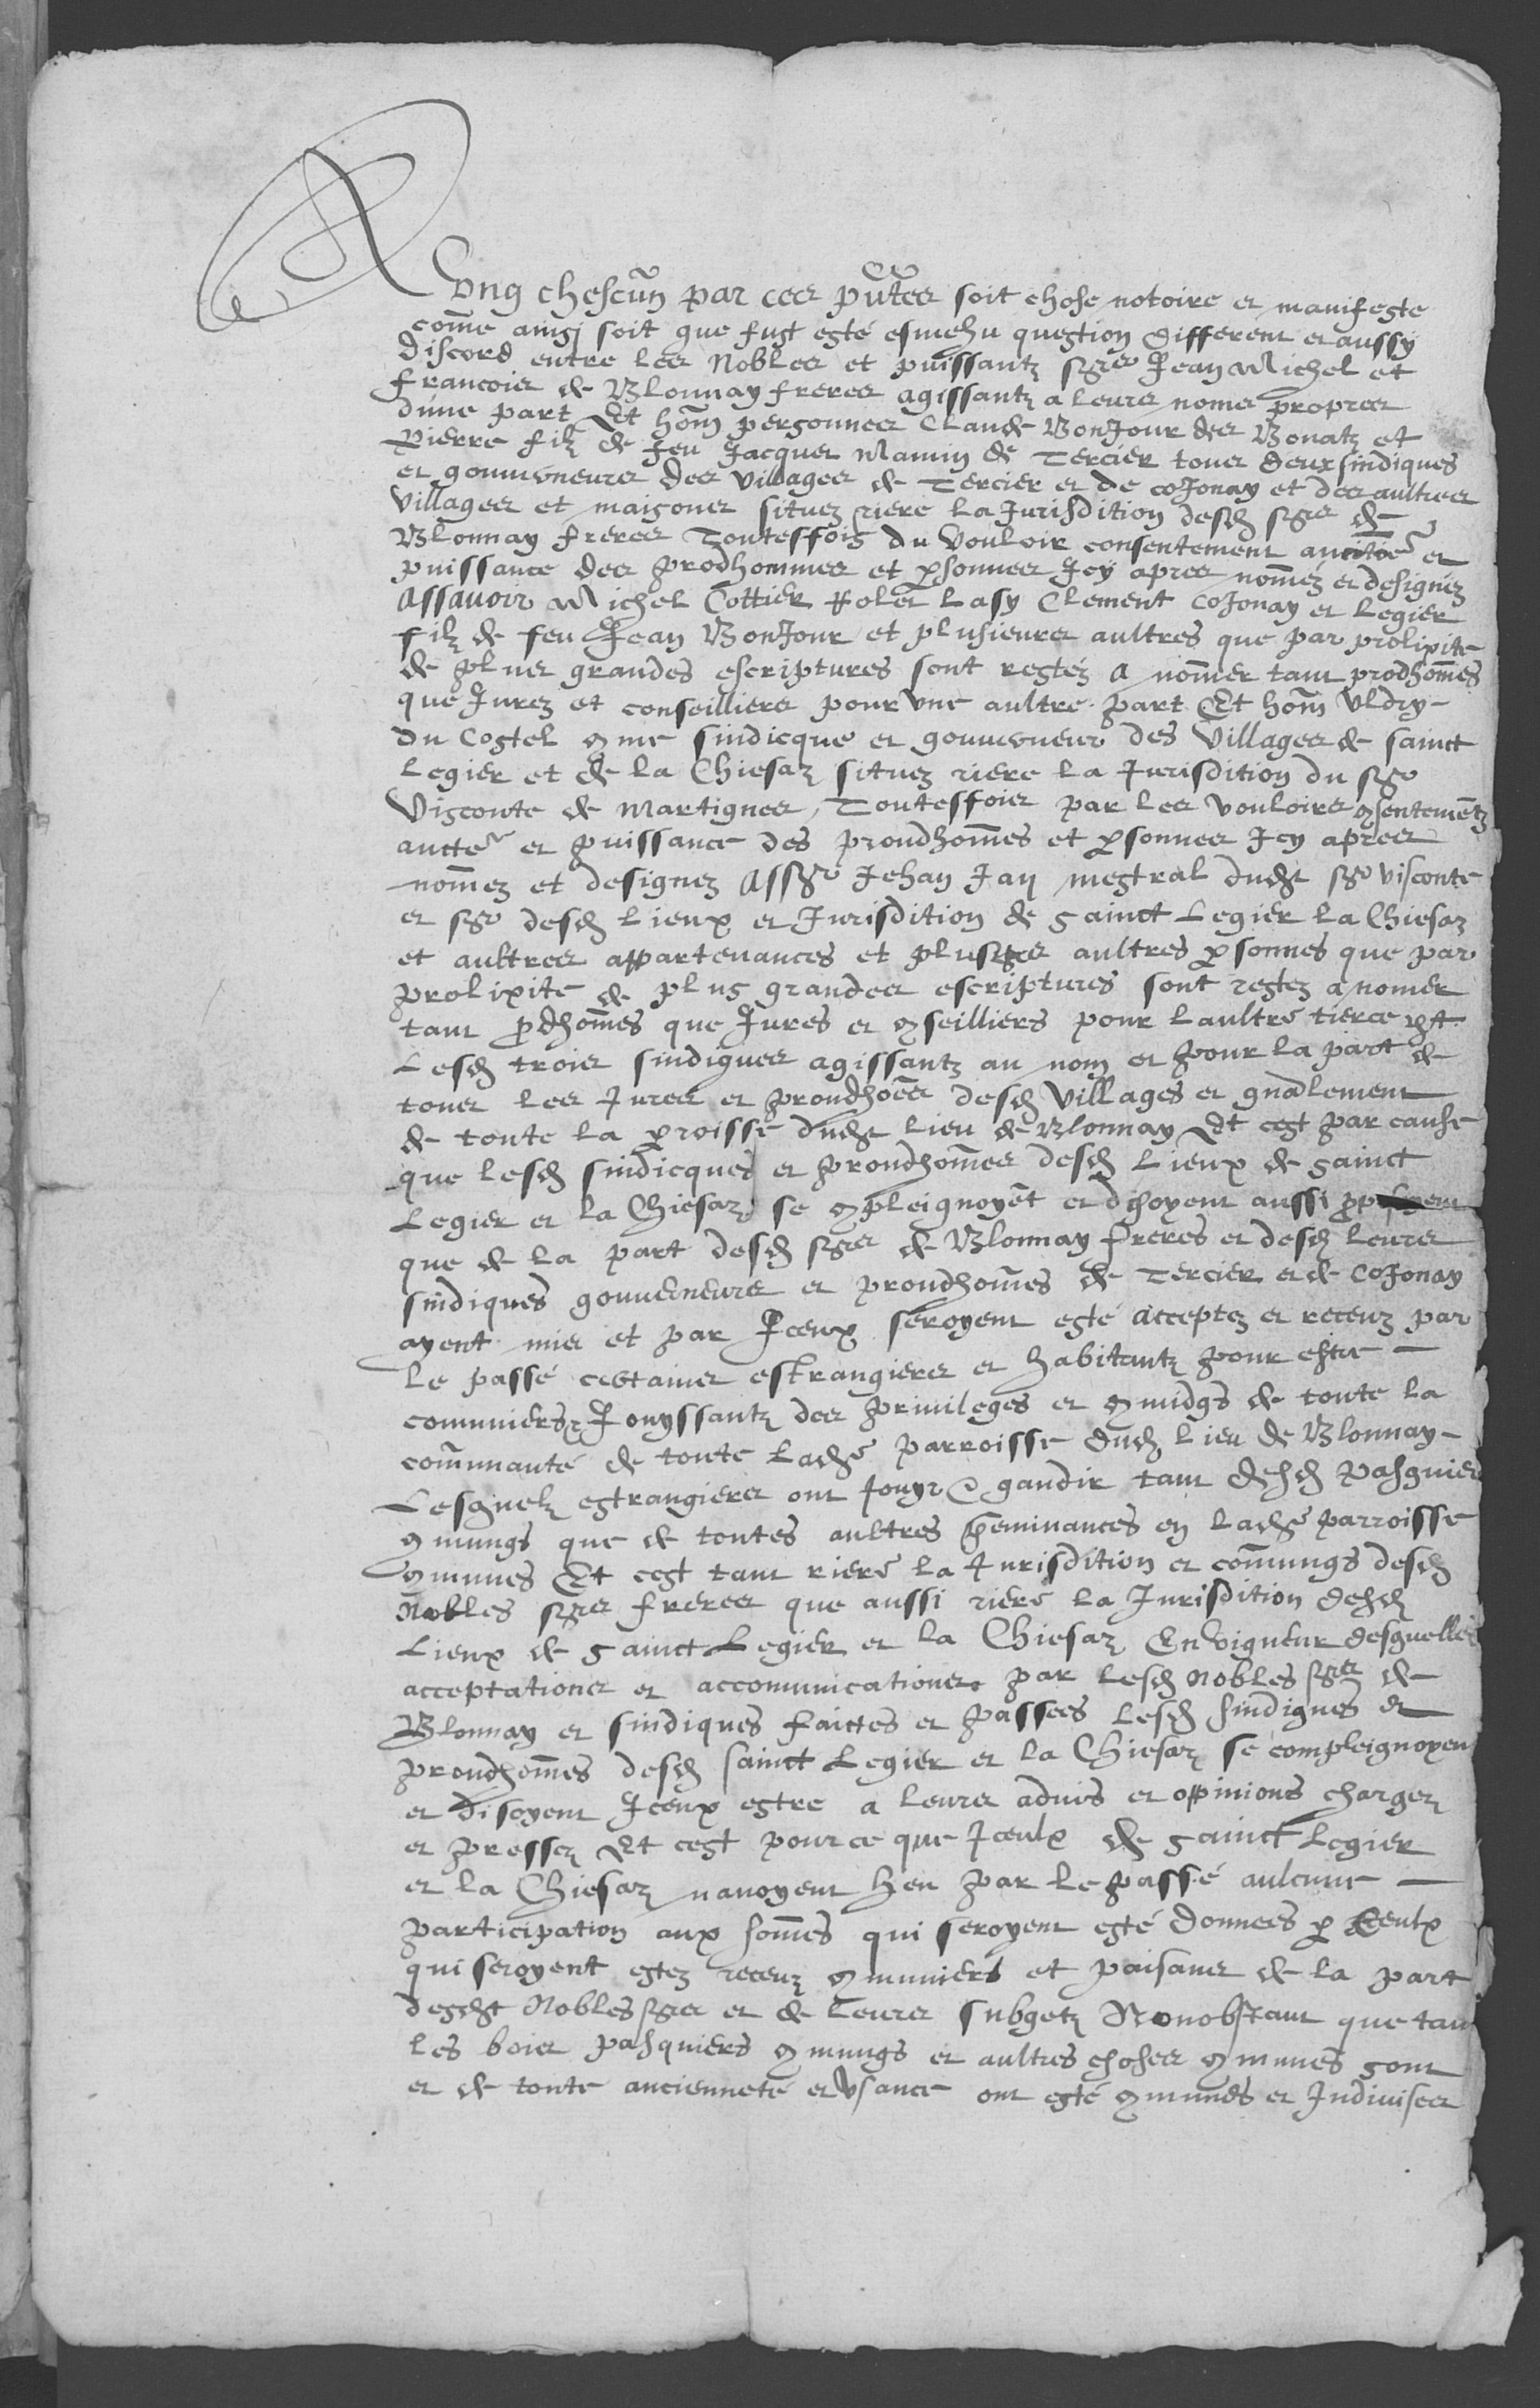 A ung chescun par ces pntes soit chose notoire et manifeste
comme ainsi soit que fust esté esmehu question different et aussy
discord entre les Nobles et puissantz sgrs Jean Michel et
francois de Blonnay freres agissantz a leurs noms propres
d'une part Et hom personnes Claude BonJour des Bonatz et
Pierre filz de feu Jacques Mamin de Tercier tous deux sindiques
et gouverneurs des villages de Tercier et de coJonay et des aultres
villages et maisons situez riere la Jurisdition desd sgrs de
Blonnay freres Touteffois du vouloir consentement auctte et
puissance des prodhommes et psonnes Jcy apres nommez et designez
Assavoir Michel Cottier Rolet Lasy Clement coJonay et Legier
filz de feu Jean BonJour et plusieurs aultres que par prolixite
de plus grandes escriptures sont restéz a nommer tant prodhommes
que Jurez et conseilliers pour une aultre part Et hom Uldry
du Costel 9me sindicque et gouverneur des villages de sainct
Legier et de la Chiesaz situez riere la Jurisdition du sgr
Visconte de Martignes, Touteffois par les vouloirs 9sentementz
auctte et puissance des proudhommes et psonnes Jcy apres
nommez et designez Assr Jehan Jan mestral dudt sgr visconte
et sgr desd lieux et Jurisdition de sainct Legier la Chiesaz
et aultres appartenances et plusgrs aultres psonnes que par
prolixité de plus grandes escriptures sont restez a nomer
tant pdhommes que Jures et 9seilliers pour laultre tierce pt
Lesd trois sindiques agissantz au nom et pour la part de
tous les Jures et proudhoes desd villages et gnalement
de toute la proisse dudt lieu de Blonnay Et cest par cause
que lesd sindicques et proudhommes desd lieux de sainct
Legier et la Chiesaz se 9pleignoyent et disoyent aussi
que de la part desd sgrs de Blonnay freres et desd leurs
sindiques gouverneurs et proudhommes de Tercier et de CoJonay
ayent mis et par Jceux seroyent esté acceptez et receuz par
le passé certains estrangiers et habitantz pour estre
communiers Jouyssantz des privileges et 9mungs de toute la
communauté de toute ladte parroisse dud lieu de Blonnay
Lesquelz estrangiers ont Jouyr gaudir tant desd pasquiers
9mungs que de toutes aultres peminances en ladte parroisse
9munes Et cest tant riere la Jurisdition et commungs desd
Nobles sgrs freres que aussi riere la Jurisdition desd
lieux de sainct Legier et la Chiesaz En vigueur desquelles
acceptations et accomunications par lesd Nobles sgrs de
Blonnay et sindiques faictes et passees lesd sindiques et
proudhommes desd sainct Legier et la Chiesaz se compleignoyen
et disoyent Jceux estre a leurs advis et oppinions chargez
et pressez Et cest pource que Jceulx de sainct Legier
et la Chiesaz navoyent heu par le passé aulcune
participation aux sommes qui seroyent esté donnees p Ceulx
qui seroyent estez receuz 9muniers et paisans de la part
desdt Nobles sgrs et de leurs subgetz Nonobstant que tan
les bois pasquiers 9mungs et aultres choses 9munes sont
et de toute ancienneté et usance ont esté 9munes et Jndivises